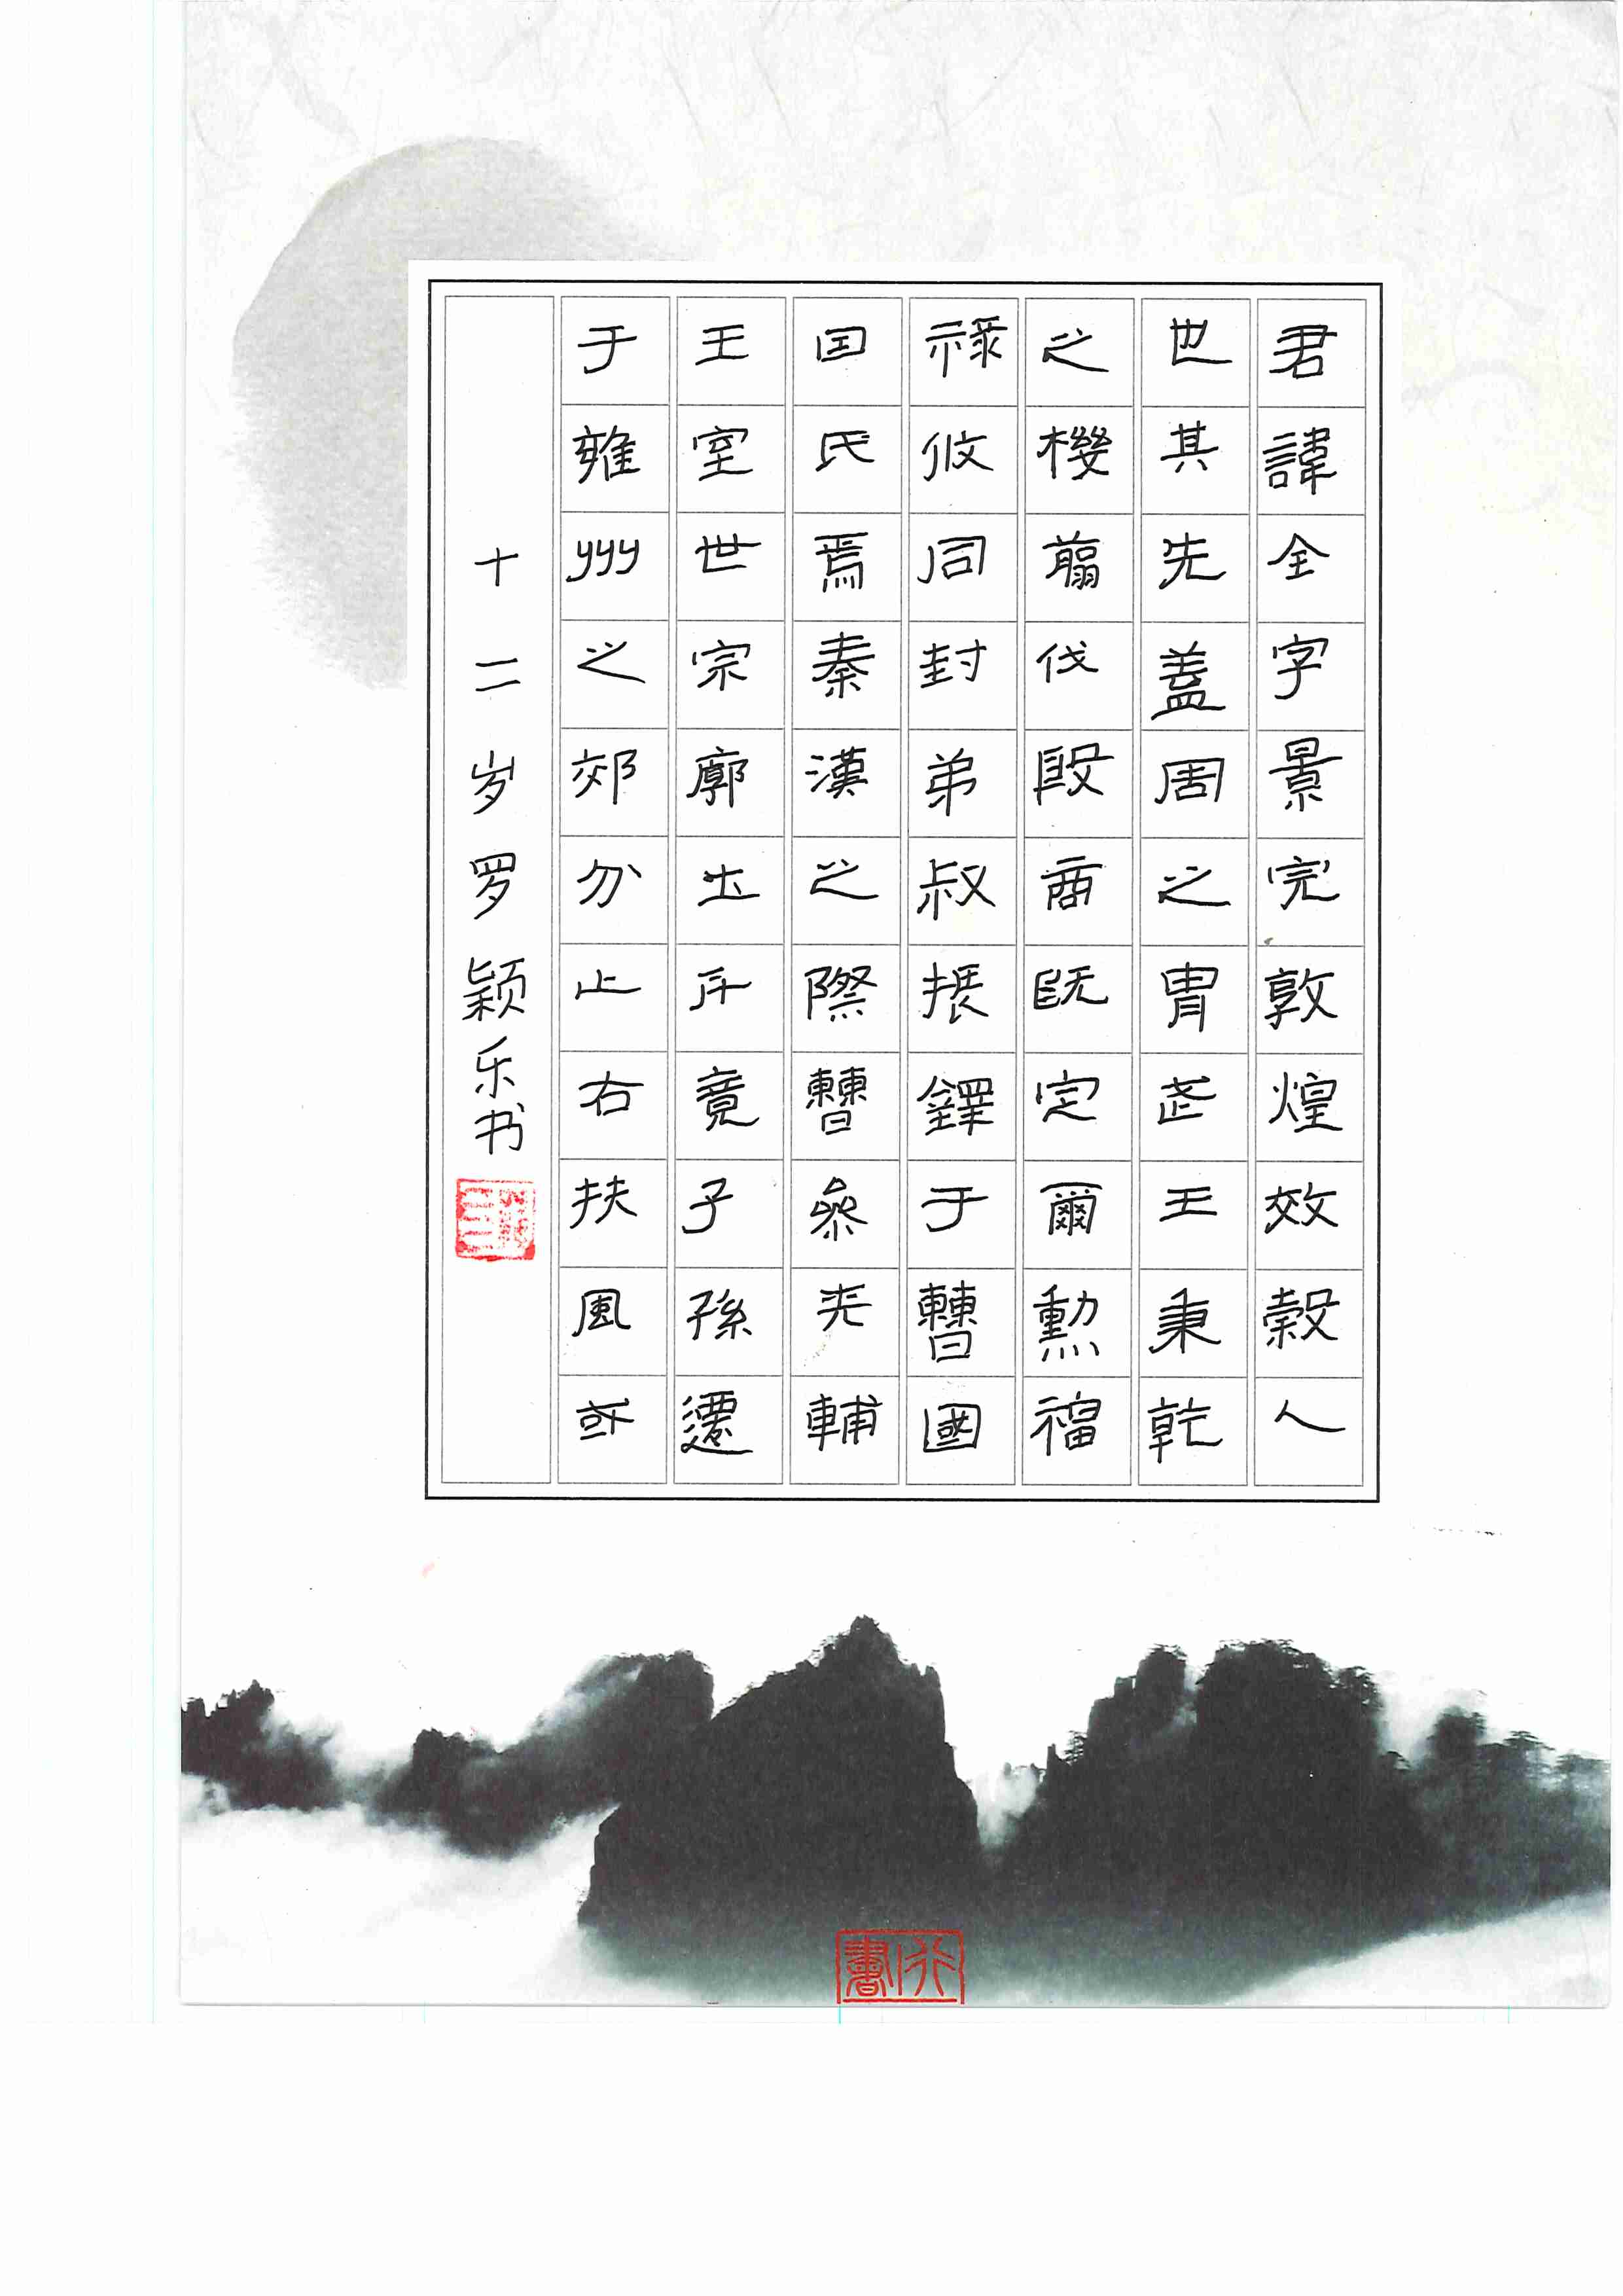 君諱全字景完敦煌效穀人
世其先蓋周之胄武王秉乾
之機翦伐殷商既定爾勲福
祿攸同封弟叔振鐸于曹國
因氏焉秦漢之際曹參夾輔
王室世宗廓土斥竟子孫遷
于雍州之郊分止右扶風或
十二岁罗颖乐书
行書